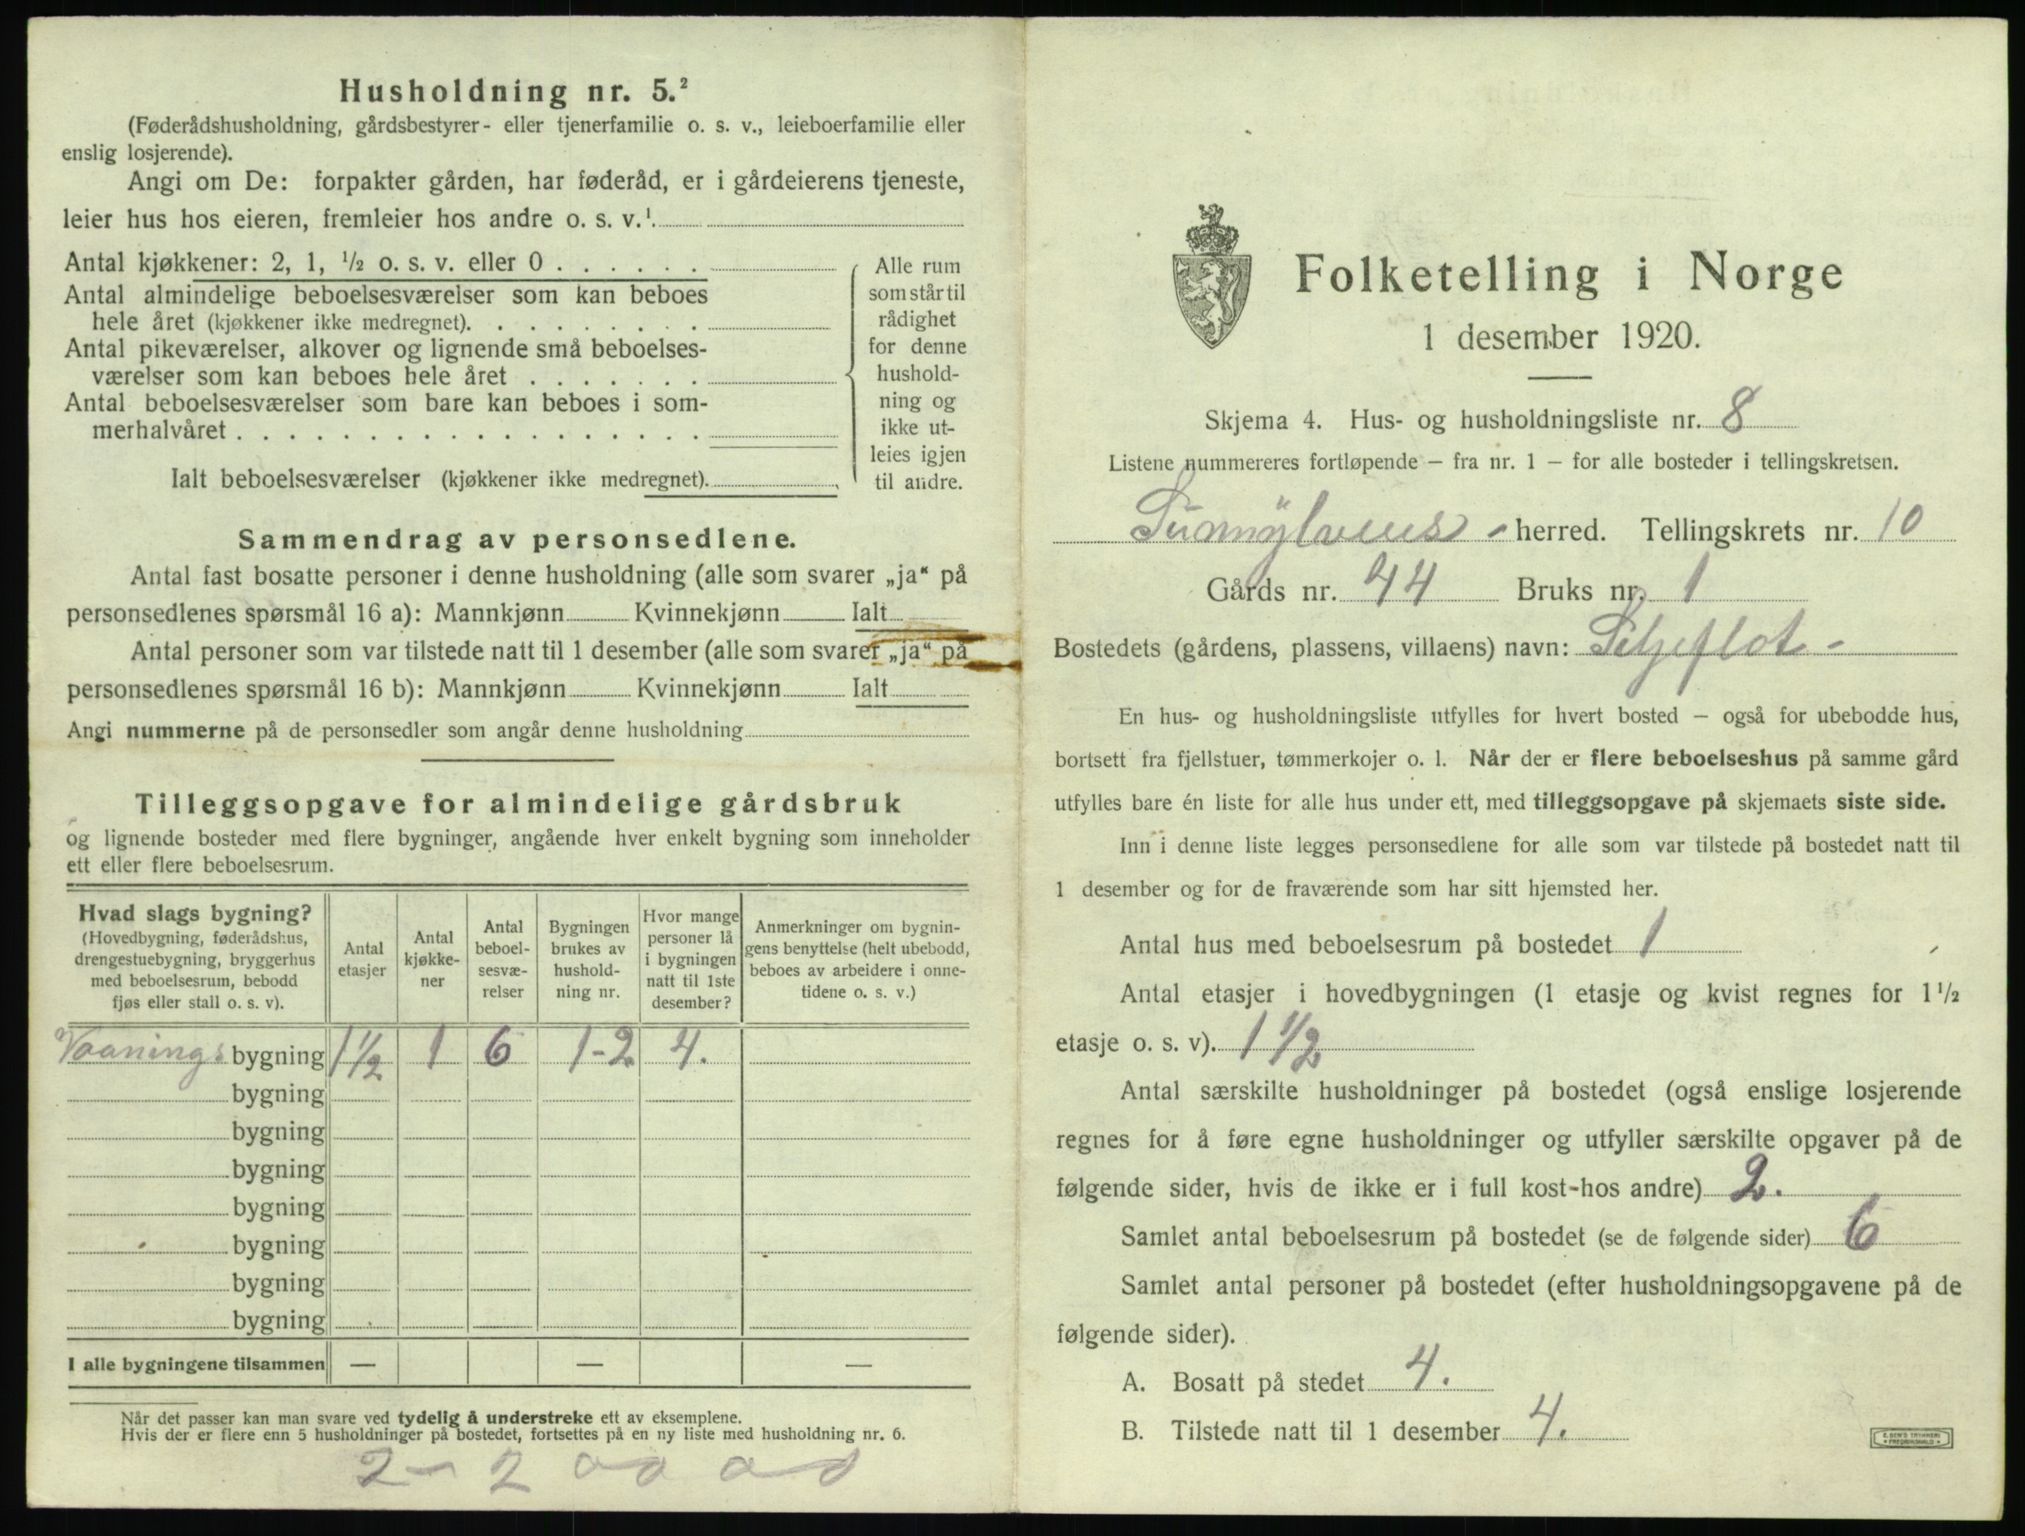 Husholdning nr. 5.²
(Føderådshusholdning, gårdsbestyrer- eller tjenerfamilie o. s. v., leieboerfamilie eller
enslig losjerende).
Angi om De: forpakter gården, har føderåd, er i gårdeierens tjeneste,
leier hus hos eieren, fremleier hos andre o. s. v.¹
Antal kjøkkener: 2, 1, ½ o. s. v. eller 0 . . . . . .
Antal almindelige beboelsesværelser som kan beboes
hele året (kjøkkener ikke medregnet). . . . . . . . .
Antal pikeværelser, alkover og lignende små beboelses-
værelser som kan beboes hele året . . . . . . .
Antal beboelsesværelser som bare kan beboes i som-
merhalvåret . . . . . . . . . . . . . . . . .
Ialt beboelsesværelser (kjøkkener ikke medregnet).
Alle rum
som står til
rådighet
for denne
hushold-
ning og
ikke ut-
leies igjen
til andre.
Sammendrag av personsedlene.
Antal fast bosatte personer i denne husholdning (alle som svarer „ja“ på
personsedlenes spørsmål 16 a): Mannkjønn Kvinnekjønn Ialt
Antal personer som var tilstede natt til 1 desember (alle som svarer „ja“ på
personsedlenes spørsmål 16 b): Mannkjønn Kvinnekjønn Ialt
Angi nummerne på de personsedler som angår denne husholdning
Tilleggsopgave for almindelige gårdsbruk
og lignende bosteder med flere bygninger, angående hver enkelt bygning som inneholder
ett eller flere beboelsesrum.
Hvad slags bygning?
(Hovedbygning, føderådshus,
drengestuebygning, bryggerhus
med beboelsesrum, bebodd
fjøs eller stall o. s. v).
Antal
etasjer
Antal
kjøkke-
ner
Antal
beboel-
sesvæ-
relser
Bygningen
brukes av
hushold-
ning nr.
Hvor mange
personer lå
i bygningen
natt til 1ste
desember?
Anmerkninger om bygnin-
gens benyttelse (helt ubebodd,
beboes av arbeidere i onne-
tidene o. s. v.)
Vaanings bygning 1½ 1 6 1-2 4.
bygning
bygning
bygning
bygning
bygning
bygning
bygning
I alle bygningene tilsammen — — —
Når det passer kan man svare ved tydelig å understreke ett av eksemplene.
Hvis der er flere enn 5 husholdninger på bostedet, fortsettes på en ny liste med husholdning nr. 6.
2 - 2
Folketelling i Norge
1 desember 1920.
Skjema 4. Hus- og husholdningsliste nr. 8
Listene nummereres fortløpende – fra nr. 1 – for alle bosteder i tellingskretsen.
Sunnylvens - herred. Tellingskrets nr. 10
Gårds nr. 44 Bruks nr. 1
Bostedets (gårdens, plassens, villaens) navn: Seljeflot -
En hus- og husholdningsliste utfylles for hvert bosted – også for ubebodde hus,
bortsett fra fjellstuer, tømmerkojer o. l. Når der er flere beboelseshus på samme gård
utfylles bare én liste for alle hus under ett, med tilleggsopgave på skjemaets siste side.
Inn i denne liste legges personsedlene for alle som var tilstede på bostedet natt til
1 desember og for de fraværende som har sitt hjemsted her.
Antal hus med beboelsesrum på bostedet 1
Antal etasjer i hovedbygningen (1 etasje og kvist regnes for 1½
etasje o. s. v). 1½
Antal særskilte husholdninger på bostedet (også enslige losjerende
regnes for å føre egne husholdninger og utfyller særskilte opgaver på de
følgende sider, hvis de ikke er i full kost-hos andre) 2.
Samlet antal beboelsesrum på bostedet (se de følgende sider) 6
Samlet antal personer på bostedet (efter husholdningsopgavene på de
følgende sider).
A. Bosatt på stedet 4.
B. Tilstede natt til 1 desember 4.